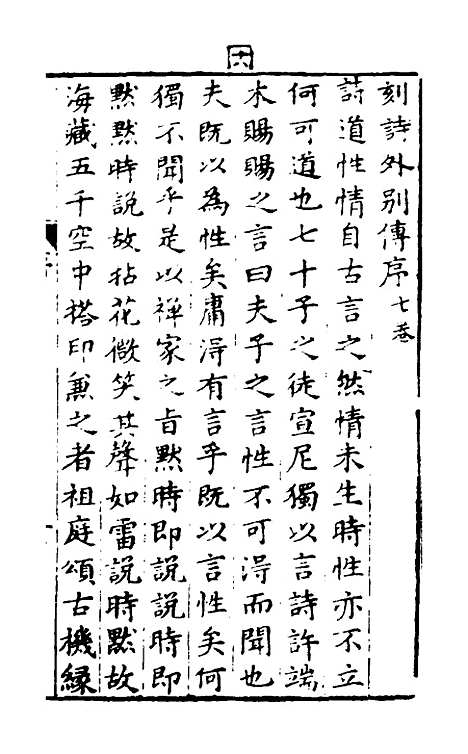 十六
刻詩外別傳序七卷
詩道性情自古言之然情未生時性亦不立
何可道也七十子之徒宣尼獨以言詩許端
木賜賜之言曰夫子之言性不可得而聞也
夫既以為性矣庸得有言乎既以言性矣何
獨不聞乎是以禅家之旨默時即説説時即
默默時説故拈花微笑其聲如雷説時默故
海藏五千空中搭印兼之者祖庭頌古機緣
序